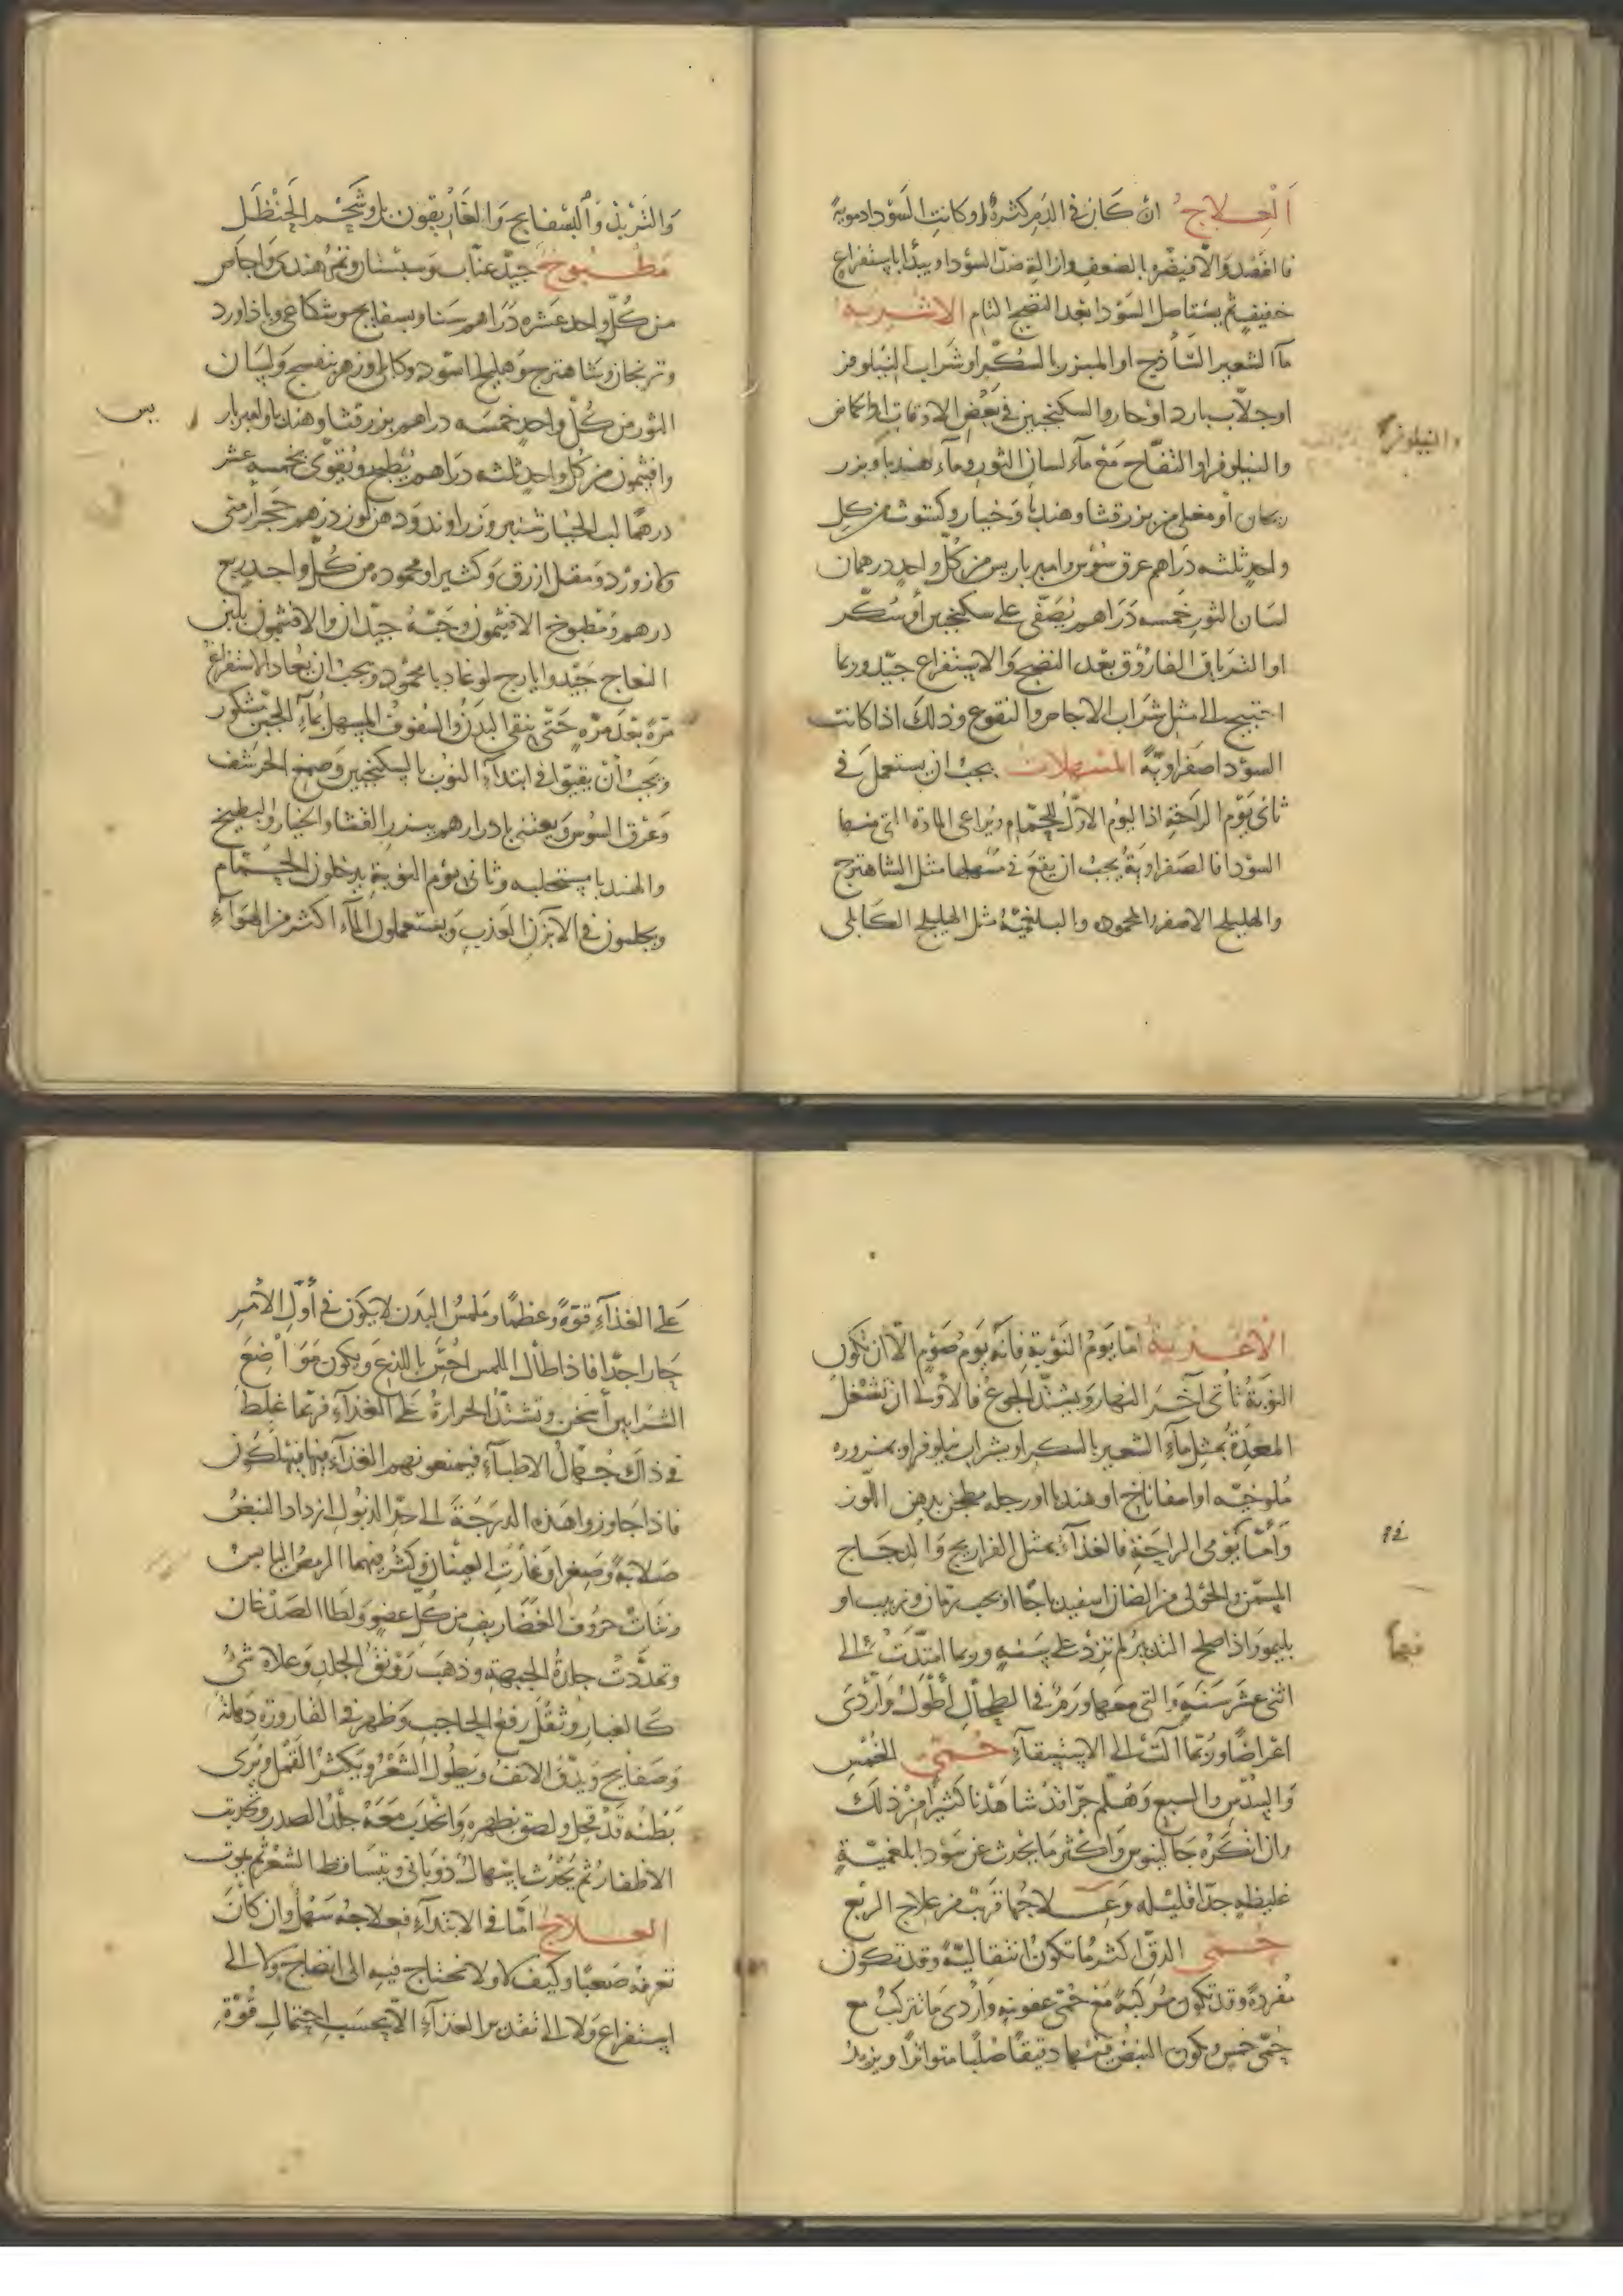 العلاج ان كان في الدم كثرة او كانت السودا دموية
فافصد والا فيضر بالضعف وازالة ضد السودا ويبدأ باستفراغ
خفيف ثم يستأصل السودا بعد النضج التام الاشربه
مآ الشعير الساذج او المبزر بالسكر او شراب النيلوفر
او جلاب بارد او حار والسكنجبين في بعض الاوقات او الحماض
والنيلوفر
والنيلوفر او التفاح مع مآء لسان الثور ومآء هندبا وبزر
ريحان او مغلي من بزر قثا وهندبا وخيار وكشوث من كل
واحد ثلثه دراهم عرق سوس وامبرباريس من كل واحد درهمان
لسان الثور خمسه دراهم يصفى على سكنجبين او سكر
او الترياق الفاروق بعد النضج والاستفراغ جيد وربما
احتيج الى مثل شراب الاجاص والنقوع وذلك اذا كانت
السودا صفراوية المسهلات يجب ان يستعمل في
ثاني يوم الراحة اذ اليوم الاول للحمام ويراعى المادة التي منها
السودا فالصفراوية يجب ان يقع في مسهلها مثل الشاهترج
والهليلج الاصفر والمحموده والبلغمية مثل الهليلج الكابلي
والتربذ والبسفايج والغاريقون بل وشحم الحنظل
مطبوخ جيد عناب وسبستان وتمر هندي واجاص
من كل واحد عشره دراهم سنا وبسفايج وشكاعي وباذاورد
وترنجان وشاهترج وهليلج اسود وكابلي وزهر بنفسج ولسان
الثور من كل واحد خمسه دراهم بزر قثا وهندبا وامبربار
يس
وافتيمون من كل واحد ثلثه دراهم يطبخ ويقوى بخمسه عشر
درهما لب الخيار شنبر وزراوند ودهن لوز درهم حجر ارمني
ولازورد ومقل ازرق وكثيرا ومحموده من كل واحد ربع
درهم ومطبوخ الافتيمون وحبه جيدان والافتيمون بلبن
النعاج جيد وايارج لوغاديا محمود ويجب ان يعاد الاستفراغ
مرة بعد مرة حتى ينقى البدن والسفوف المسهل بمآء الجبن مشكور
ويجب ان يقيوا في ابتدآء النوب بالسكنجبين وصمغ الحرشف
وعرق السوس ويعتنى بادرارهم ببزر القثا والخيار والبطيخ
والهندبا مستحلبه وثاني يوم النوبة يدخلون الحمام
ويجلسون في الابزن العذب ويستعملون المآء اكثر من الهوآء
الاغذية اما يوم النوبة فانه يوم صوم الا ان تكون
النوبة تأتي آخر النهار ويشتد الجوع فالأولى ان تشغل
المعدة بمثل مآء الشعير بالسكر او بشراب نيلوفر او بمزوره
ملوخيه او اسفاناخ او هندبا او رجله مطجن بدهن اللوز
وأما يومي الراحة فالغذآء بمثل الفراريج والدجاج
المسمن والحولي من الضان اسفيذباجا او بحب رمان وزبيب او
بليمو واذا صلح التدبير لم تزد على سنة وربما امتدت الى
اثنى عشر سنة والتي معها ورم في الطحال أطول وأردى
فيها
اعراضا وربما آلت الى الاستسقآء حمى الخمس
والسدس والسبع وهلم جرا قد شاهدنا كثيرا من ذلك
وان انكره جالينوس واكثر ما يحدث عن سودا بلغمية
غليظه جدا قليله وعلاجها قريب من علاج الربع
حمى الدق اكثر ما تكون انتقالية وقد تكون
مفردة وقد تكون مركبة مع حمى عفونيه واردى ما تتركب مع
حمى خمس ويكون النبض فيها دقيقا صلبا متواترا ويزيد
على الغذآء قوة وعظما وملمس البدن لا يكون في أول الأمر
حارا جدا فاذا طال اللمس احس باللذع ويكون مواضع
الشرايين أسخن وتشتد الحرارة على الغذآء فربما غلط
في ذلك جهال الاطبآء فيمنعونهم الغذآء فيهلكون
فاذا جاوزوا هذه الدرجة الى حد الذبول ازداد النبض
صلابة وصغرا وغارت العينان وكثر فيهما الرمص اليابس
ونتأت حروف الغضاريف من كل عضو ولطا الصدغان
وتمددت جلدة الجبهة وذهب رونق الجلد وعلاه شئ
كالغبار وثقل رفع الحاجب وظهر في القاروره دهانة
وصفايح ويدق الانف ويطول الشعر ويكثر القمل ويرى
بطنه قد قحل ولصق بظهره وانجذب معه جلد الصدر وتحدبت
الاظفار ثم يحدث اسهال ذوباني ويتساقط الشعر ثم يموت
العلاج اما في الابتدآء فعلاجه سهل وان كان
تعرفه صعبا وكيف لا ولا تحتاج فيه الى انضاج ولا الى
استفراغ ولا الى تقدير الغذآء الا بحسب احتمال قوة